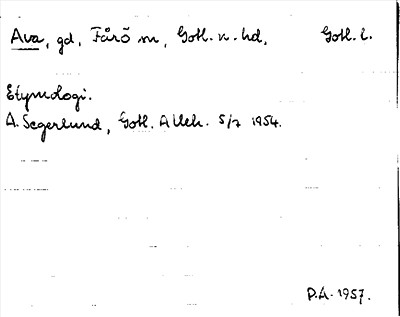 Ava, gd, Fårö sn, Gotl. n. hd, Gotl. l.
Etymologi.
A. Segerlund, Gotl. Alleh. 5/7 1954.
P.A. 1957.